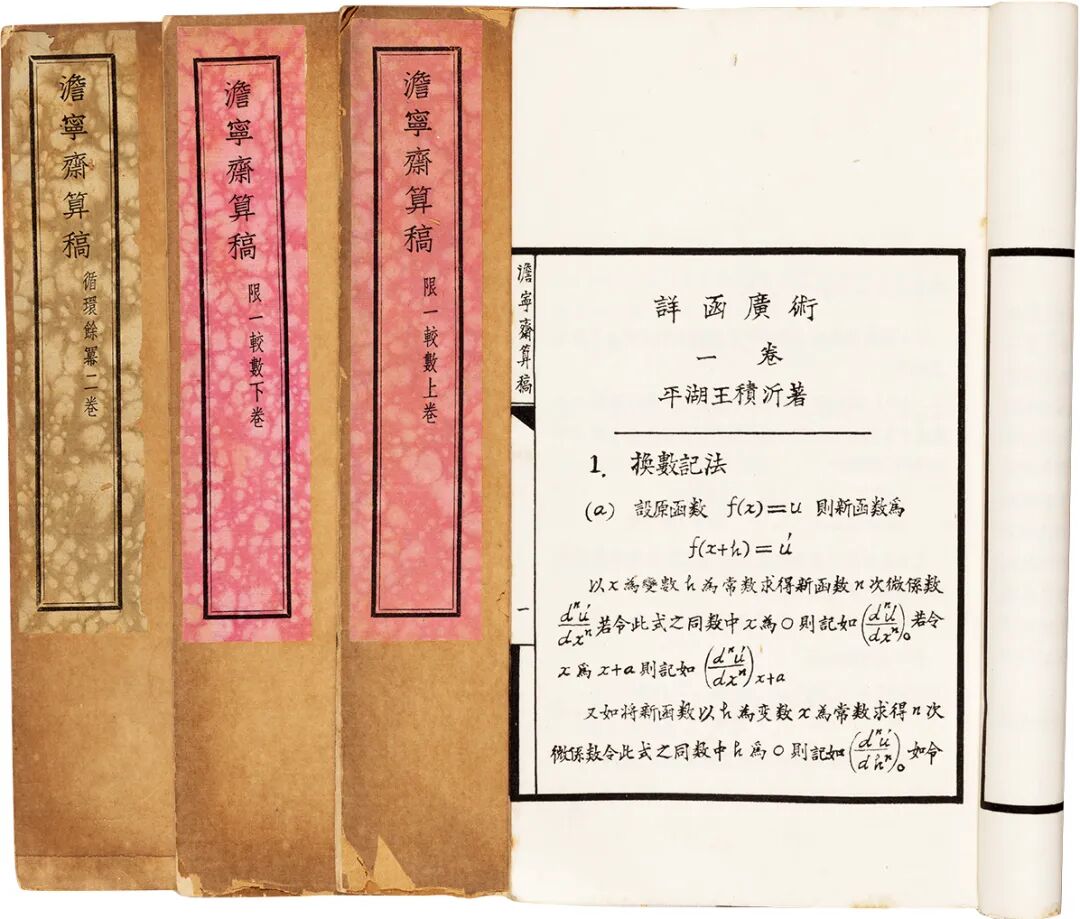 澹寧齋算稿
循環餘冪二卷
澹寧齋算稿
限一較數下卷
澹寧齋算稿
限一較數上卷
澹寧齋算稿
一
詳函廣術
一卷
平湖王積沂著
1. 換數記法
(a) 設原函数 f(x)=u 則新函数爲
f(x+h)=ú
以x爲變數h爲常数求得新函数n次微係數
dⁿú/dxⁿ 若令此式之同数中x爲0則記如(dⁿú/dxⁿ)₀若令
x爲x+a則記如(dⁿú/dxⁿ)x+a
又如将新函数以h爲变数x爲常数求得n次
微係数令此式之同数中h爲0則記如(dⁿú/dhⁿ)₀如令